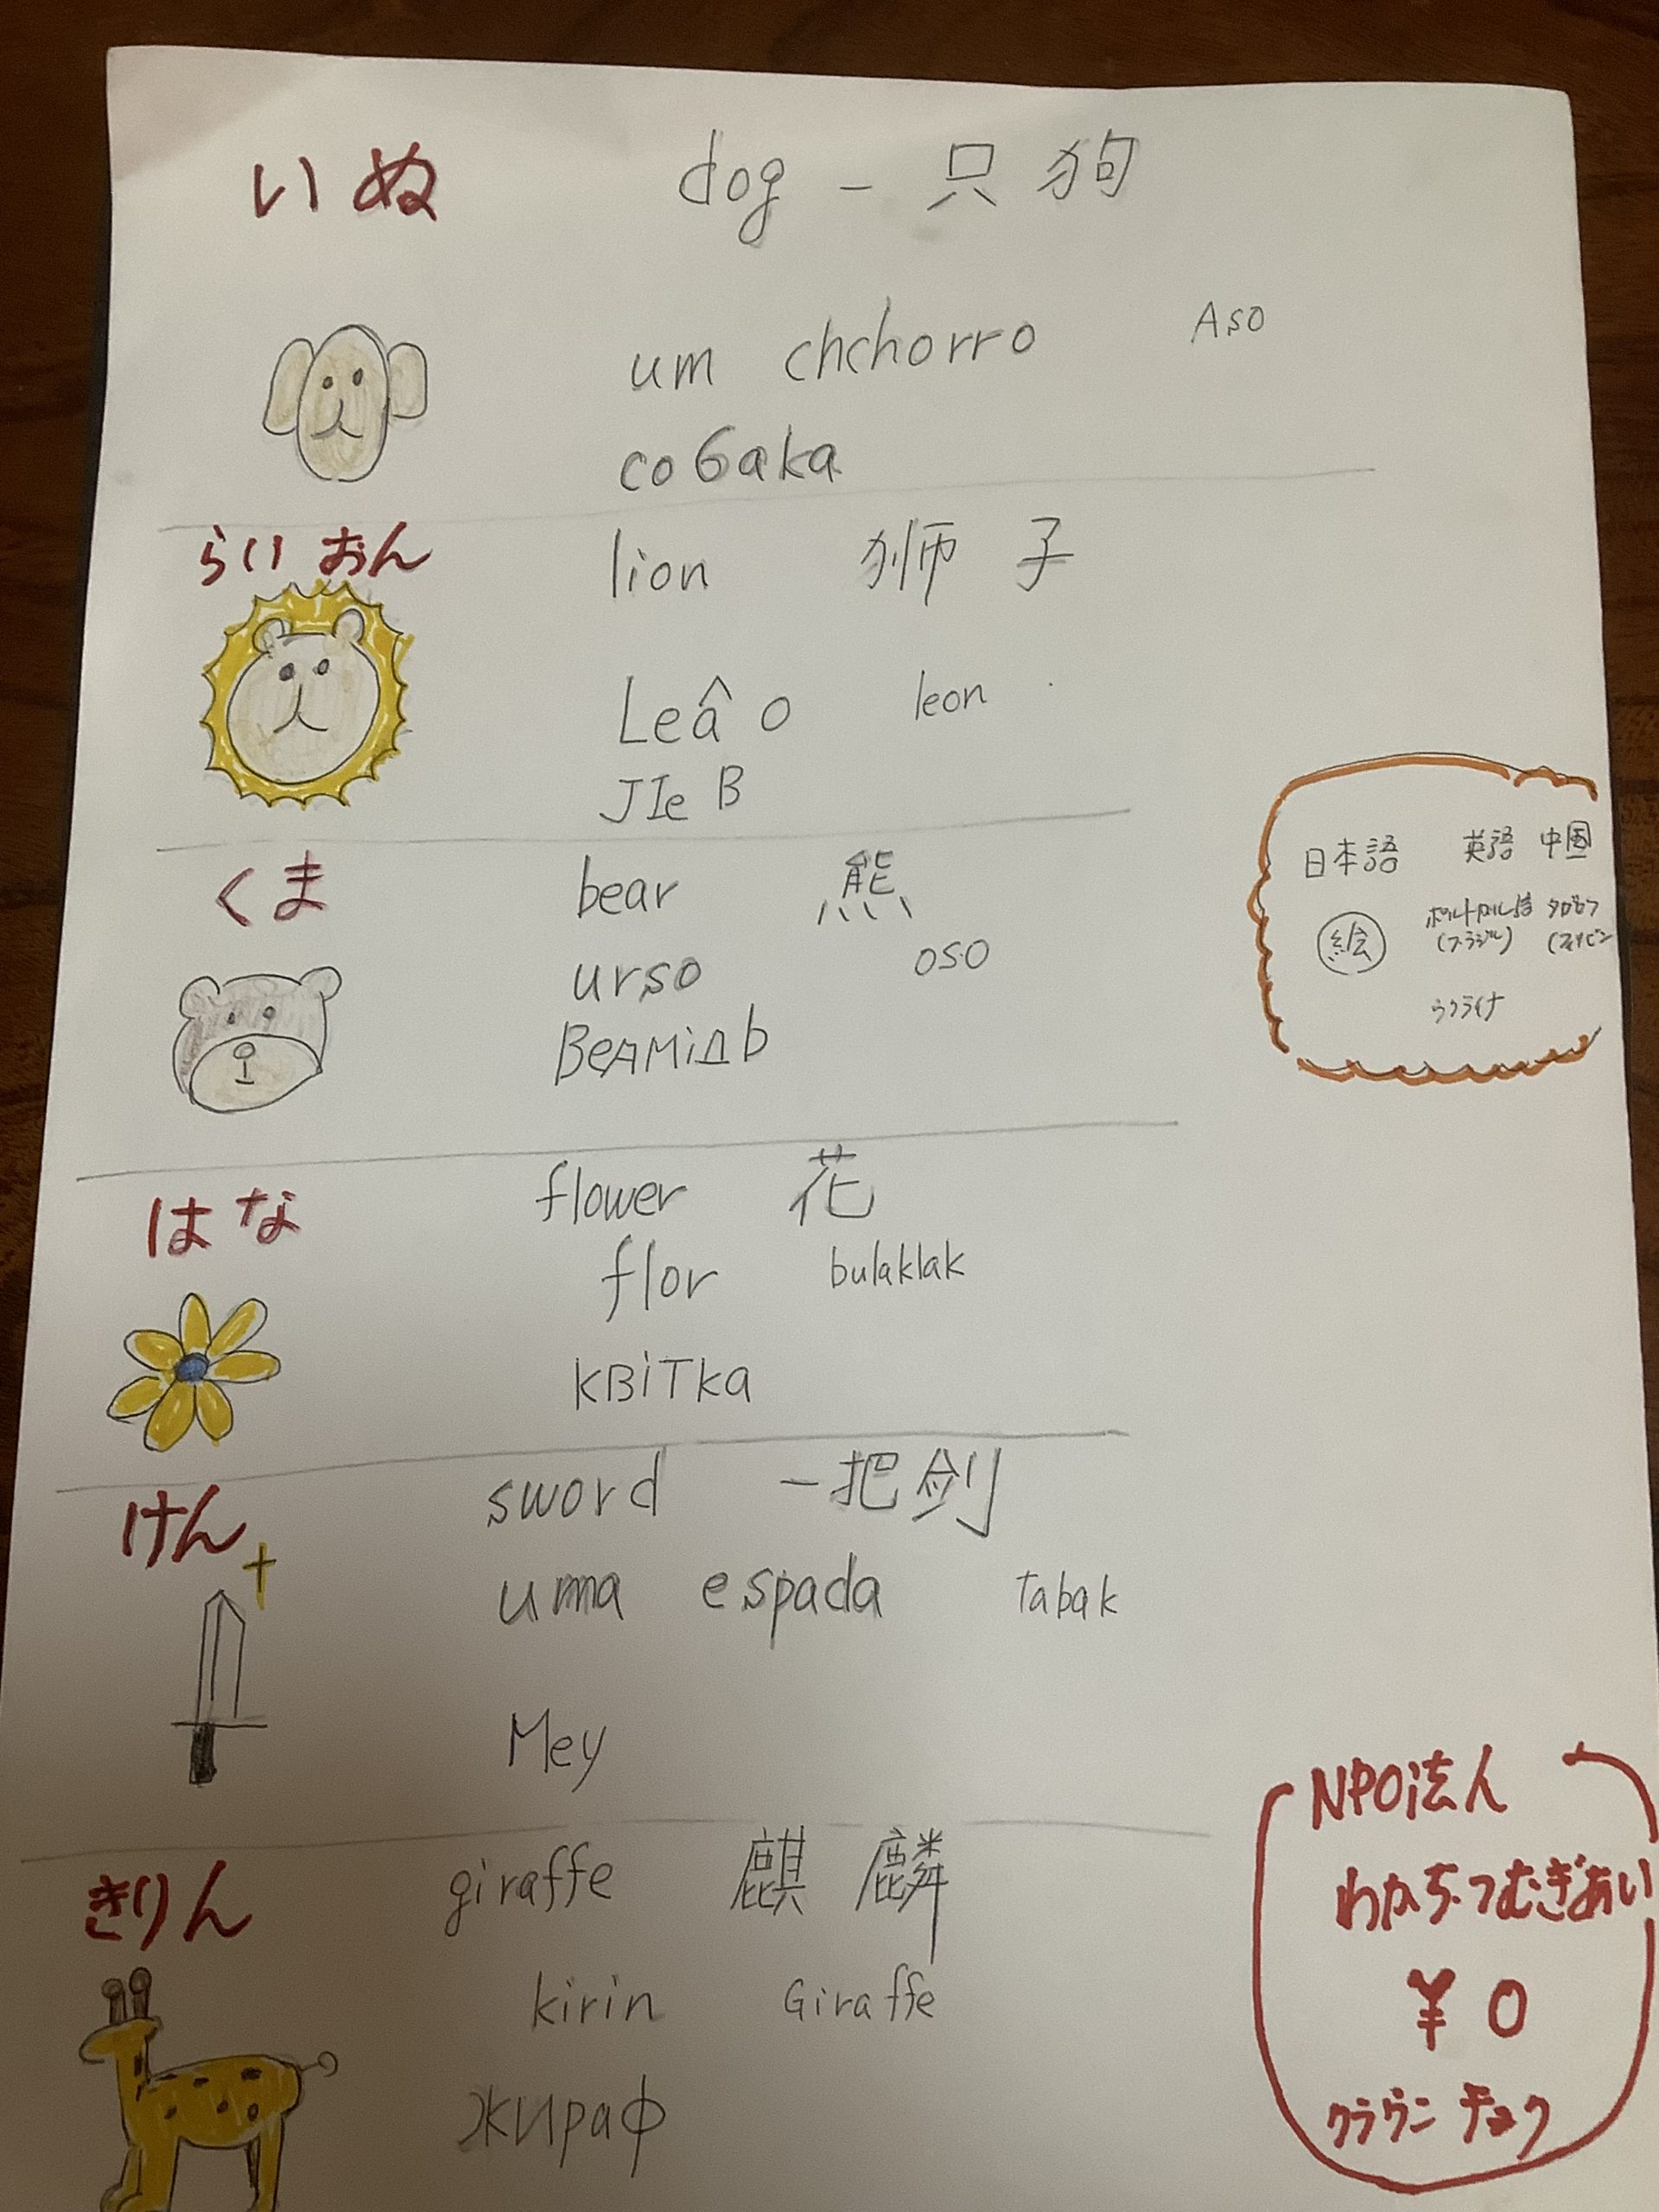 いぬ dog 一只狗
um chchorro Aso
cobaka
らいおん lion 狮子
Leâo leon
JIeB
くま bear 熊
urso oso
BeAMiДb
日本語 英語 中国
絵 ポルトガル語 タガログ
(ブラジル) (フィリピン
ウクライナ
はな flower 花
flor bulaklak
KBiTka
けん sword 一把剑
uma espada Tabak
Mey
きりん giraffe 麒麟
kirin Giraffe
жираф
NPO法人
わかち・つむぎあい
¥0
クラウン チョク